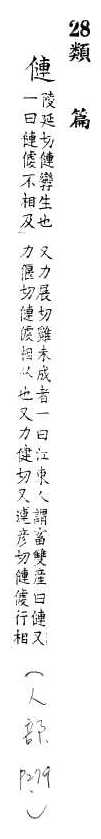 28 類篇
僆
陵延切僆孿生也
一曰僆不相及
又力展切雞未成者一曰江東人謂畜雙產曰僆又
力偃切僆相从也又力健切又連彥切僆行相
(人部 P279)